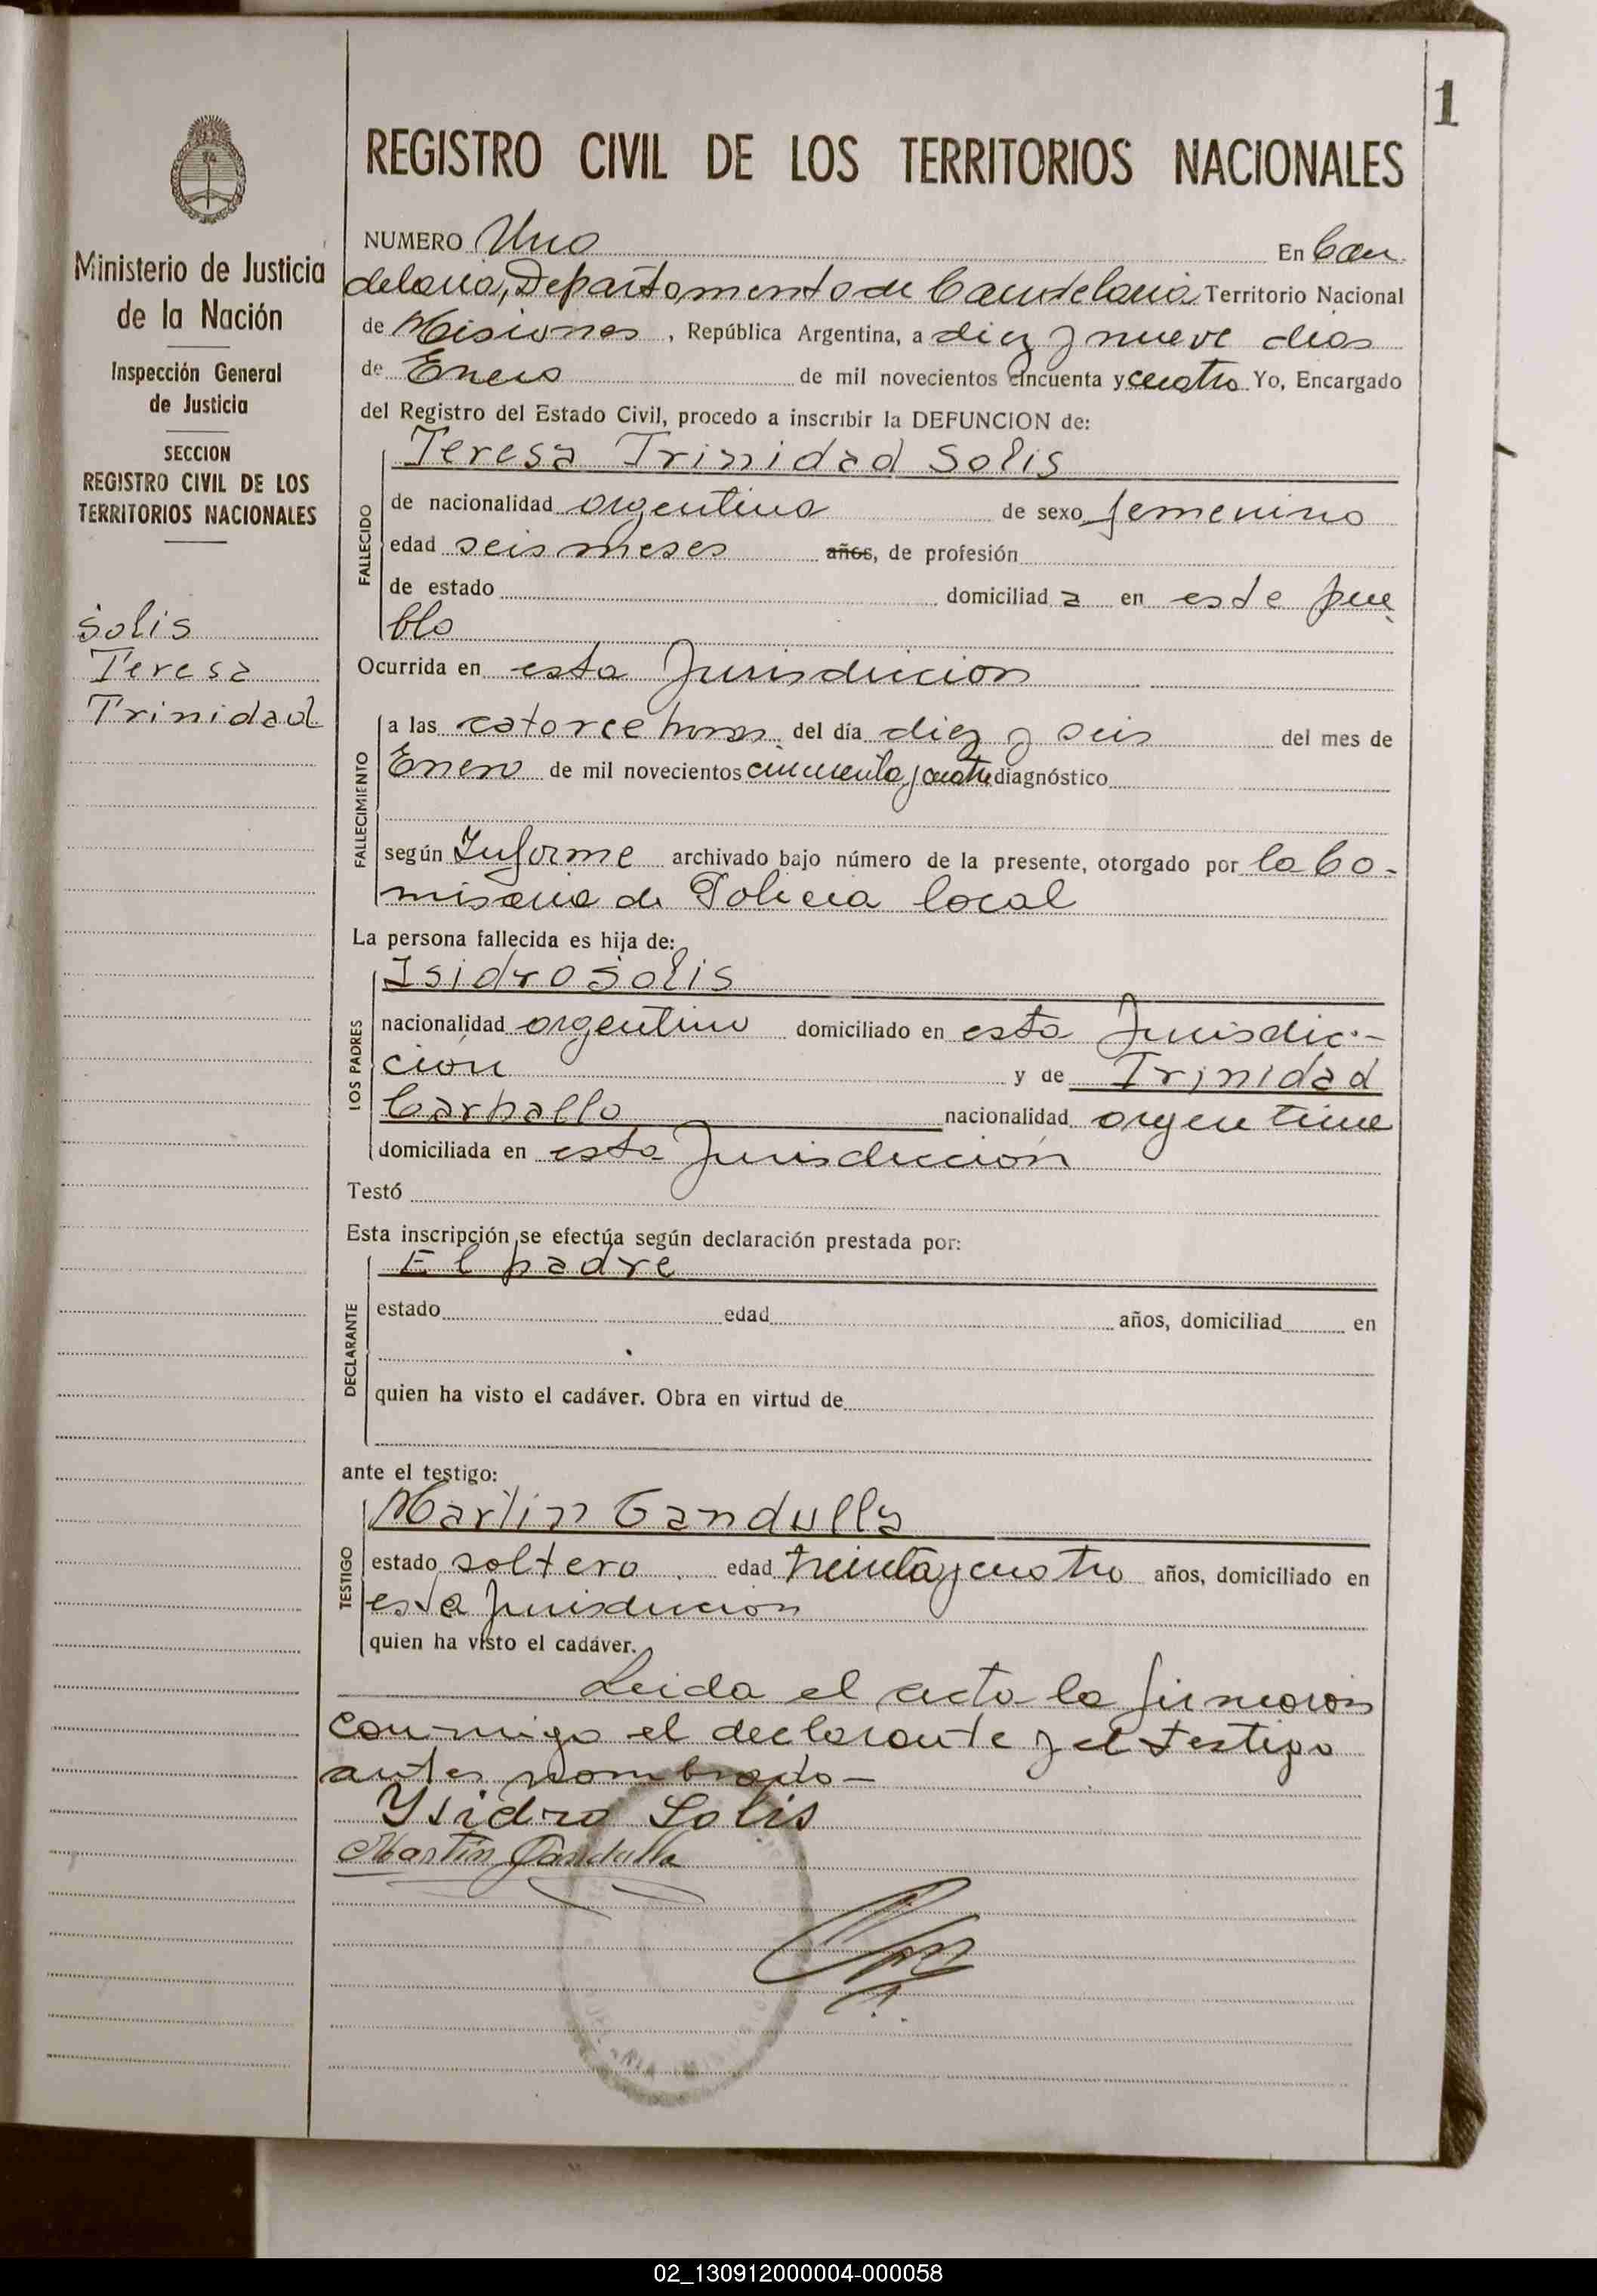 1
REGISTRO CIVIL DE LOS TERRITORIOS NACIONALES
Ministerio de Justicia
de la Nación
Inspección General
de Justicia
SECCION
REGISTRO CIVIL DE LOS
TERRITORIOS NACIONALES
Solis
Teresa
Trinidad
NUMERO Uno En Can
delaria, Departamento de Candelaria Territorio Nacional
de Misiones, República Argentina, a diez y nueve días
de Enero de mil novecientos cincuenta y cuatro Yo, Encargado
del Registro del Estado Civil, procedo a inscribir la DEFUNCION de:
Teresa Trinidad Solis
FALLECIDO
de nacionalidad argentina de sexo femenino
edad seis meses años, de profesión
de estado domiciliad a en este pue
blo
Ocurrida en esta Jurisdiccion
FALLECIMIENTO
a las catorce horas del día diez y seis del mes de
Enero de mil novecientos cincuenta y cuatro diagnóstico
según Informe archivado bajo número de la presente, otorgado por la Co-
misaria de Policia local
La persona fallecida es hija de:
LOS PADRES
Isidro Solis
nacionalidad argentino domiciliado en esta Jurisdic-
ción y de Trinidad
Carballo nacionalidad argentina
domiciliada en esta Jurisdicción
Testó
Esta inscripción se efectúa según declaración prestada por:
DECLARANTE
El padre
estado edad años, domiciliad en
quien ha visto el cadáver. Obra en virtud de
ante el testigo:
TESTIGO
Martin Gandulla
estado soltero edad treinta y cuatro años, domiciliado en
esta Jurisdiccion
quien ha visto el cadáver.
Leida el acta la firmaron
conmigo el declarante y el testigo
antes nombrado-
Ysidro Solis
Martin Gandulla
02_130912000004-000058